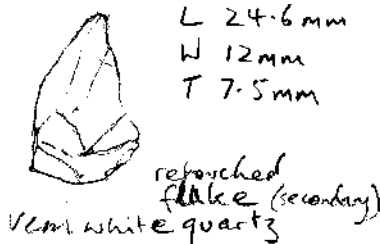 L 24.6mm
W 12mm
T 7.5mm
retouched
flake (secondary)
Vein white quartz